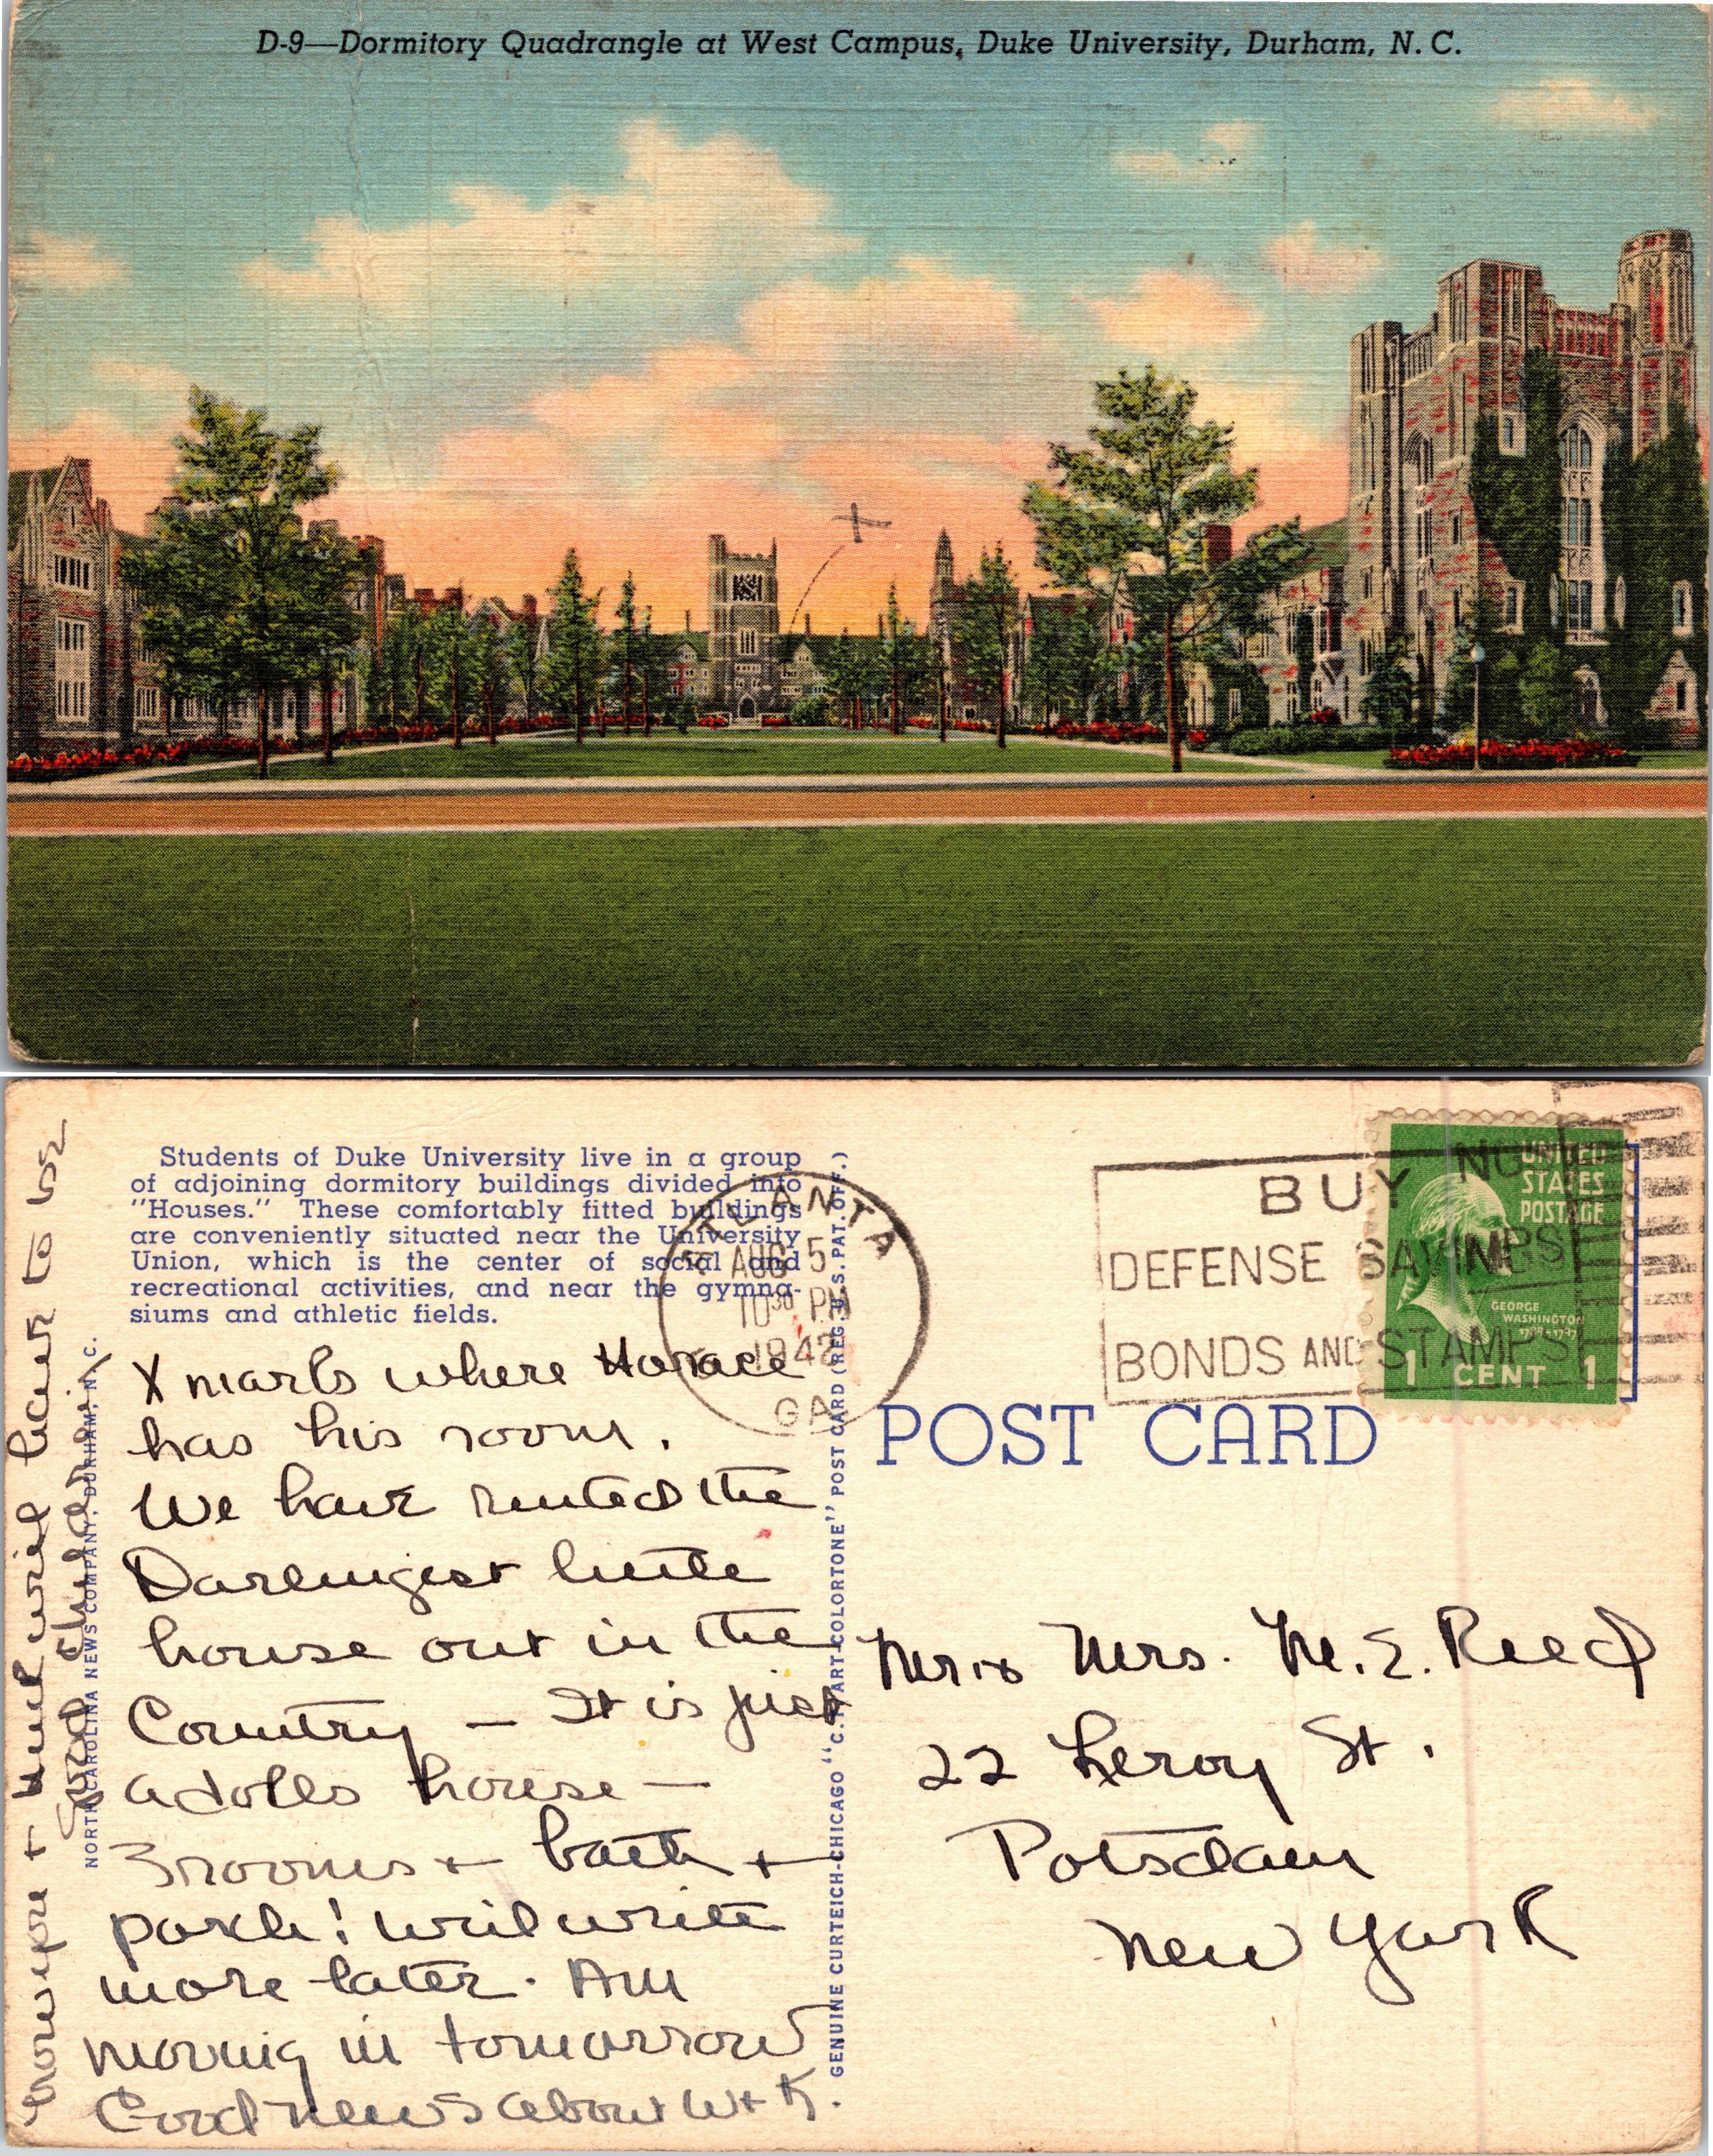 D-9—Dormitory Quadrangle at West Campus, Duke University, Durham, N. C.
Students of Duke University live in a group
of adjoining dormitory buildings divided into
"Houses." These comfortably fitted buildings
are conveniently situated near the University
Union, which is the center of social and
recreational activities, and near the gymna-
siums and athletic fields.
X marks where Horace
has his room.
We have rented the
Darlingest little
house out in the
Country — It is just
a dolls house —
3 rooms + bath +
porch! Will write
more later. Am
moving in tomorrow
Good news about W + K.
how you +
will have to be
good children
NORTH CAROLINA NEWS COMPANY, DURHAM, N. C.
GENUINE CURTEICH-CHICAGO "C. T. ART-COLORTONE" POST CARD (REG. U.S. PAT. OFF.)
ATLANTA
AUG 5
10 30 PM
1942
GA.
BUY
DEFENSE SAVINGS
BONDS AND STAMPS
UNITED
STATES
POSTAGE
GEORGE
WASHINGTON
1789-1797
1 CENT 1
POST CARD
Mr + Mrs. M. E. Reed
22 Leroy St.
Potsdam
New York